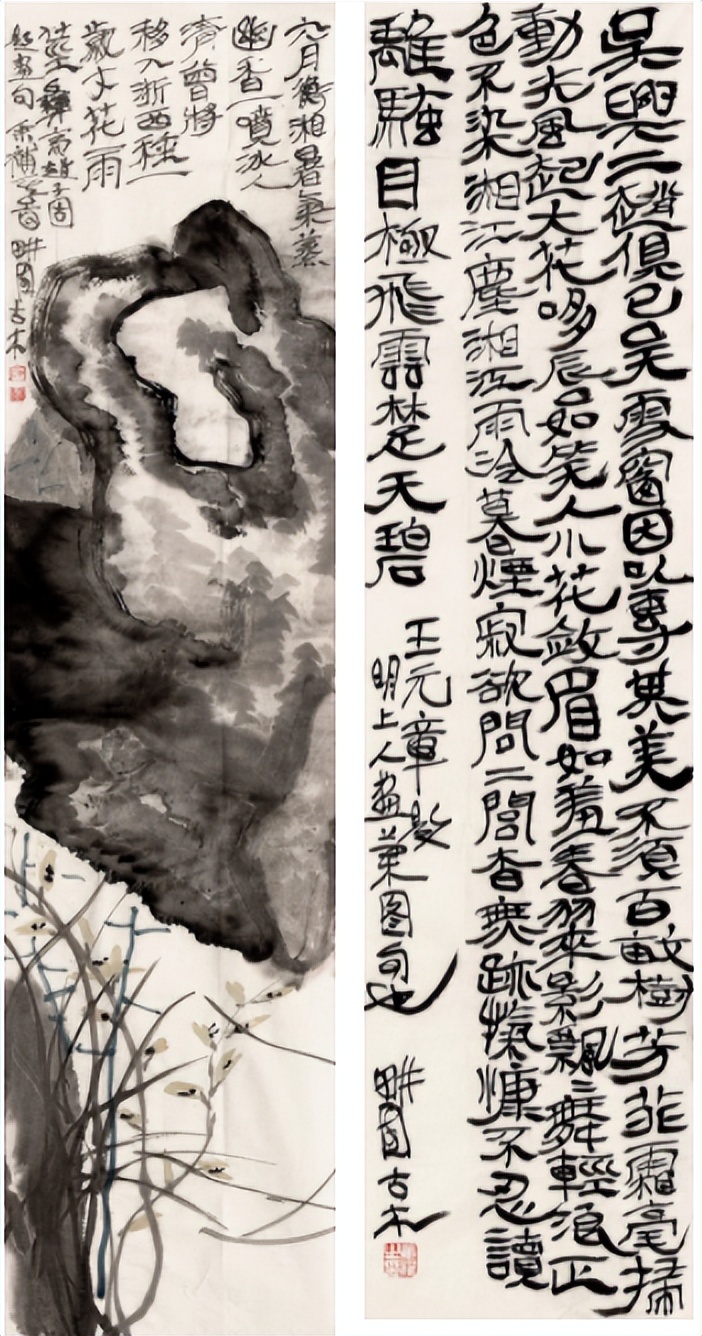 六月衡湘暑氣蒸
幽香一噴冰人
清曾將
移入浙西種一
歲才花兩
莖彝齋趙子固
題畫句 畊園古木
吳興二趙俱已矣雪窗因以專其美不須百畝樹芳菲霜毫掃
動光風起大花哆辰如笑人小花斂眉如羞春翠影飄飄舞輕浪正
色不染湘江塵湘江雨冷暮煙寂欲問三閭杳無跡愾慷不忍讀
離騷目極飛雲楚天碧
王元章題
明上人畫蘭圖句也
畊園古木